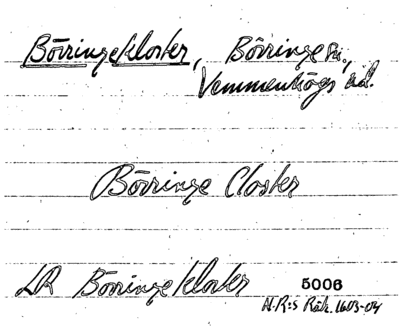 Börringekloster, Börringe sn.,
Vemmenhögs hd.
Börringe Closter
LR Börringekloster 5006
H.R:s Räk. 1603-04